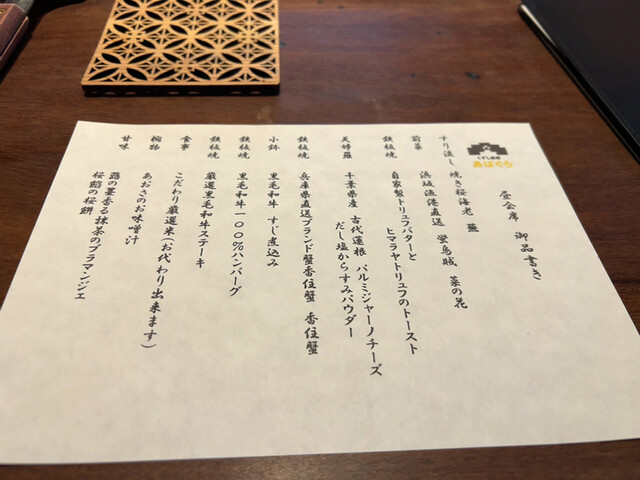 くずし割烹
あぼぐら
昼会席 御品書き
すり流し 焼き桜海老 蕪
前菜 浜坂漁港直送 蛍烏賊 菜の花
鉄板焼 自家製トリュフバターと
ヒマラヤトリュフのトースト
天婦羅 千葉県産 古代蓮根 パルミジャーノチーズ
だし塩からすみパウダー
鉄板焼 兵庫県直送ブランド蟹香住蟹 香住蟹
小鉢 黒毛和牛 すじ煮込み
鉄板焼 黒毛和牛一〇〇%ハンバーグ
鉄板焼 厳選黒毛和牛ステーキ
食事 こだわり厳選米(お代わり出来ます)
椀物 あおさのお味噌汁
甘味 露の薹香る抹茶のブラマンジェ
桜餡の桜餅